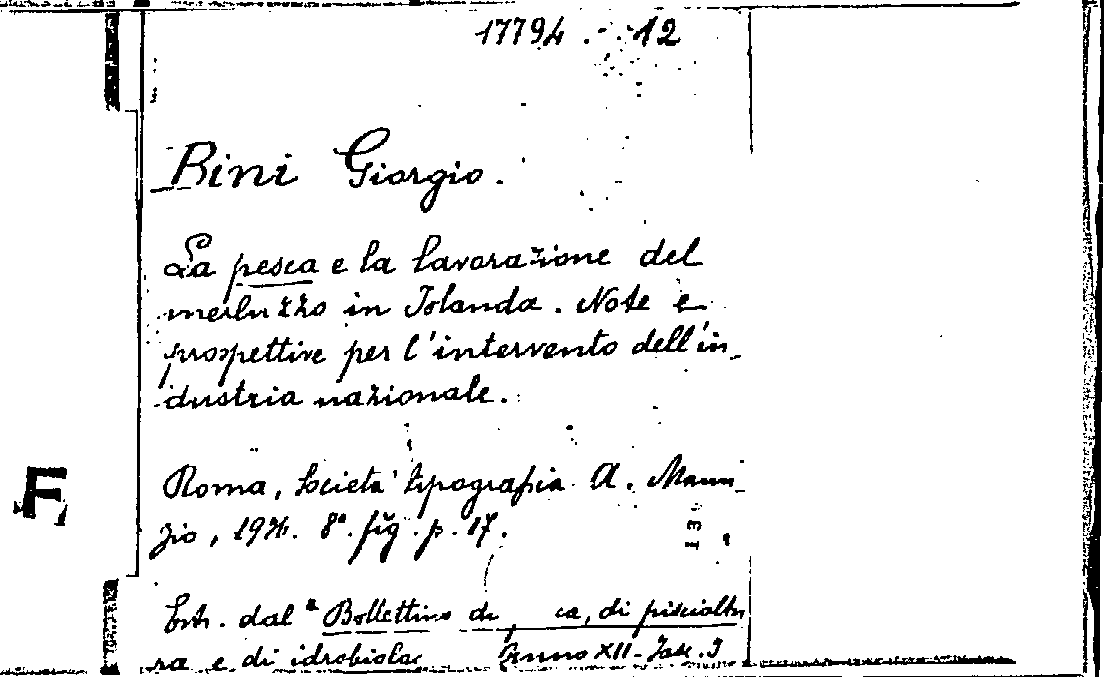 17794 . - . 12
Bini Giorgio.
La pesca e la lavorazione del
merluzzo in Islanda. Note e
prospettive per l'intervento dell'in-
dustria nazionale.
Roma, Società tipografia A. Mani-
zio, 8°. fig. p. 17.
F
Estr. dal "Bollettino di di piscicoltu
ra e di idrobiolog Anno XII - Fasc. I